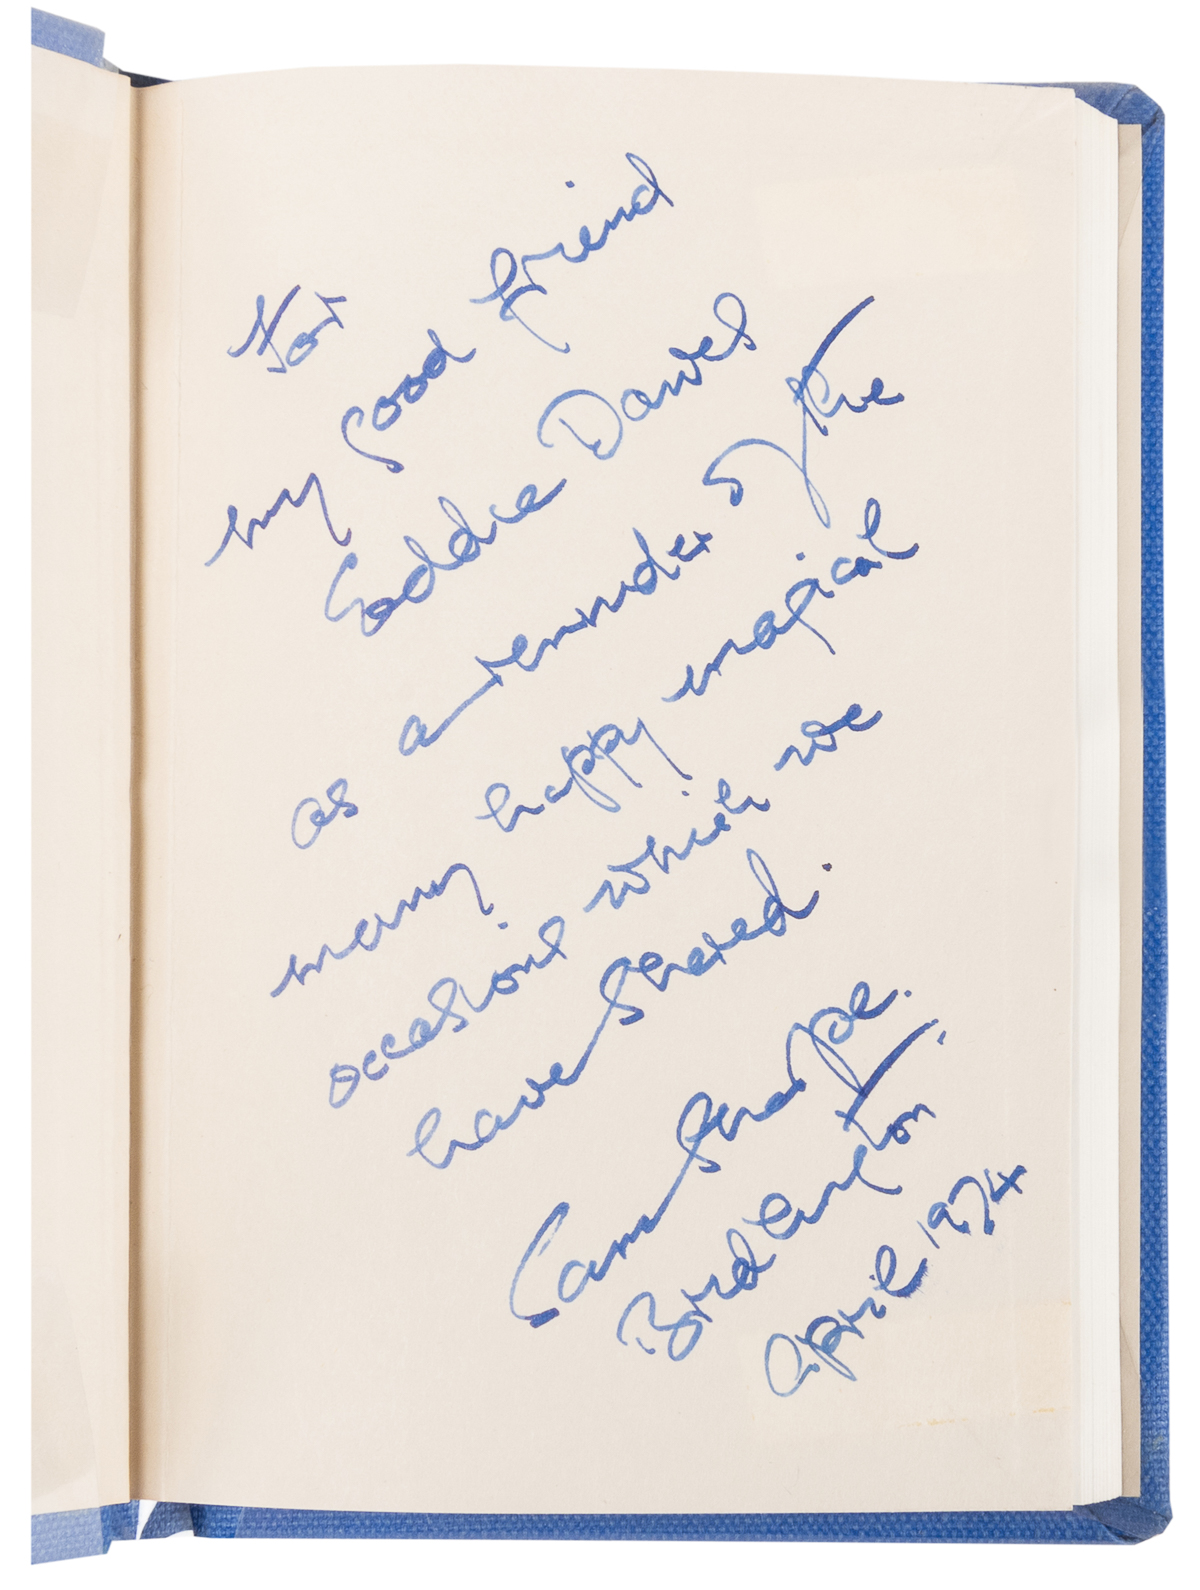 For
my good friend
Eddie Dawes
as a reminder of the
many happy magical
occasions which we
have shared.
Sam Sharpe.
Bridlington.
April 1974